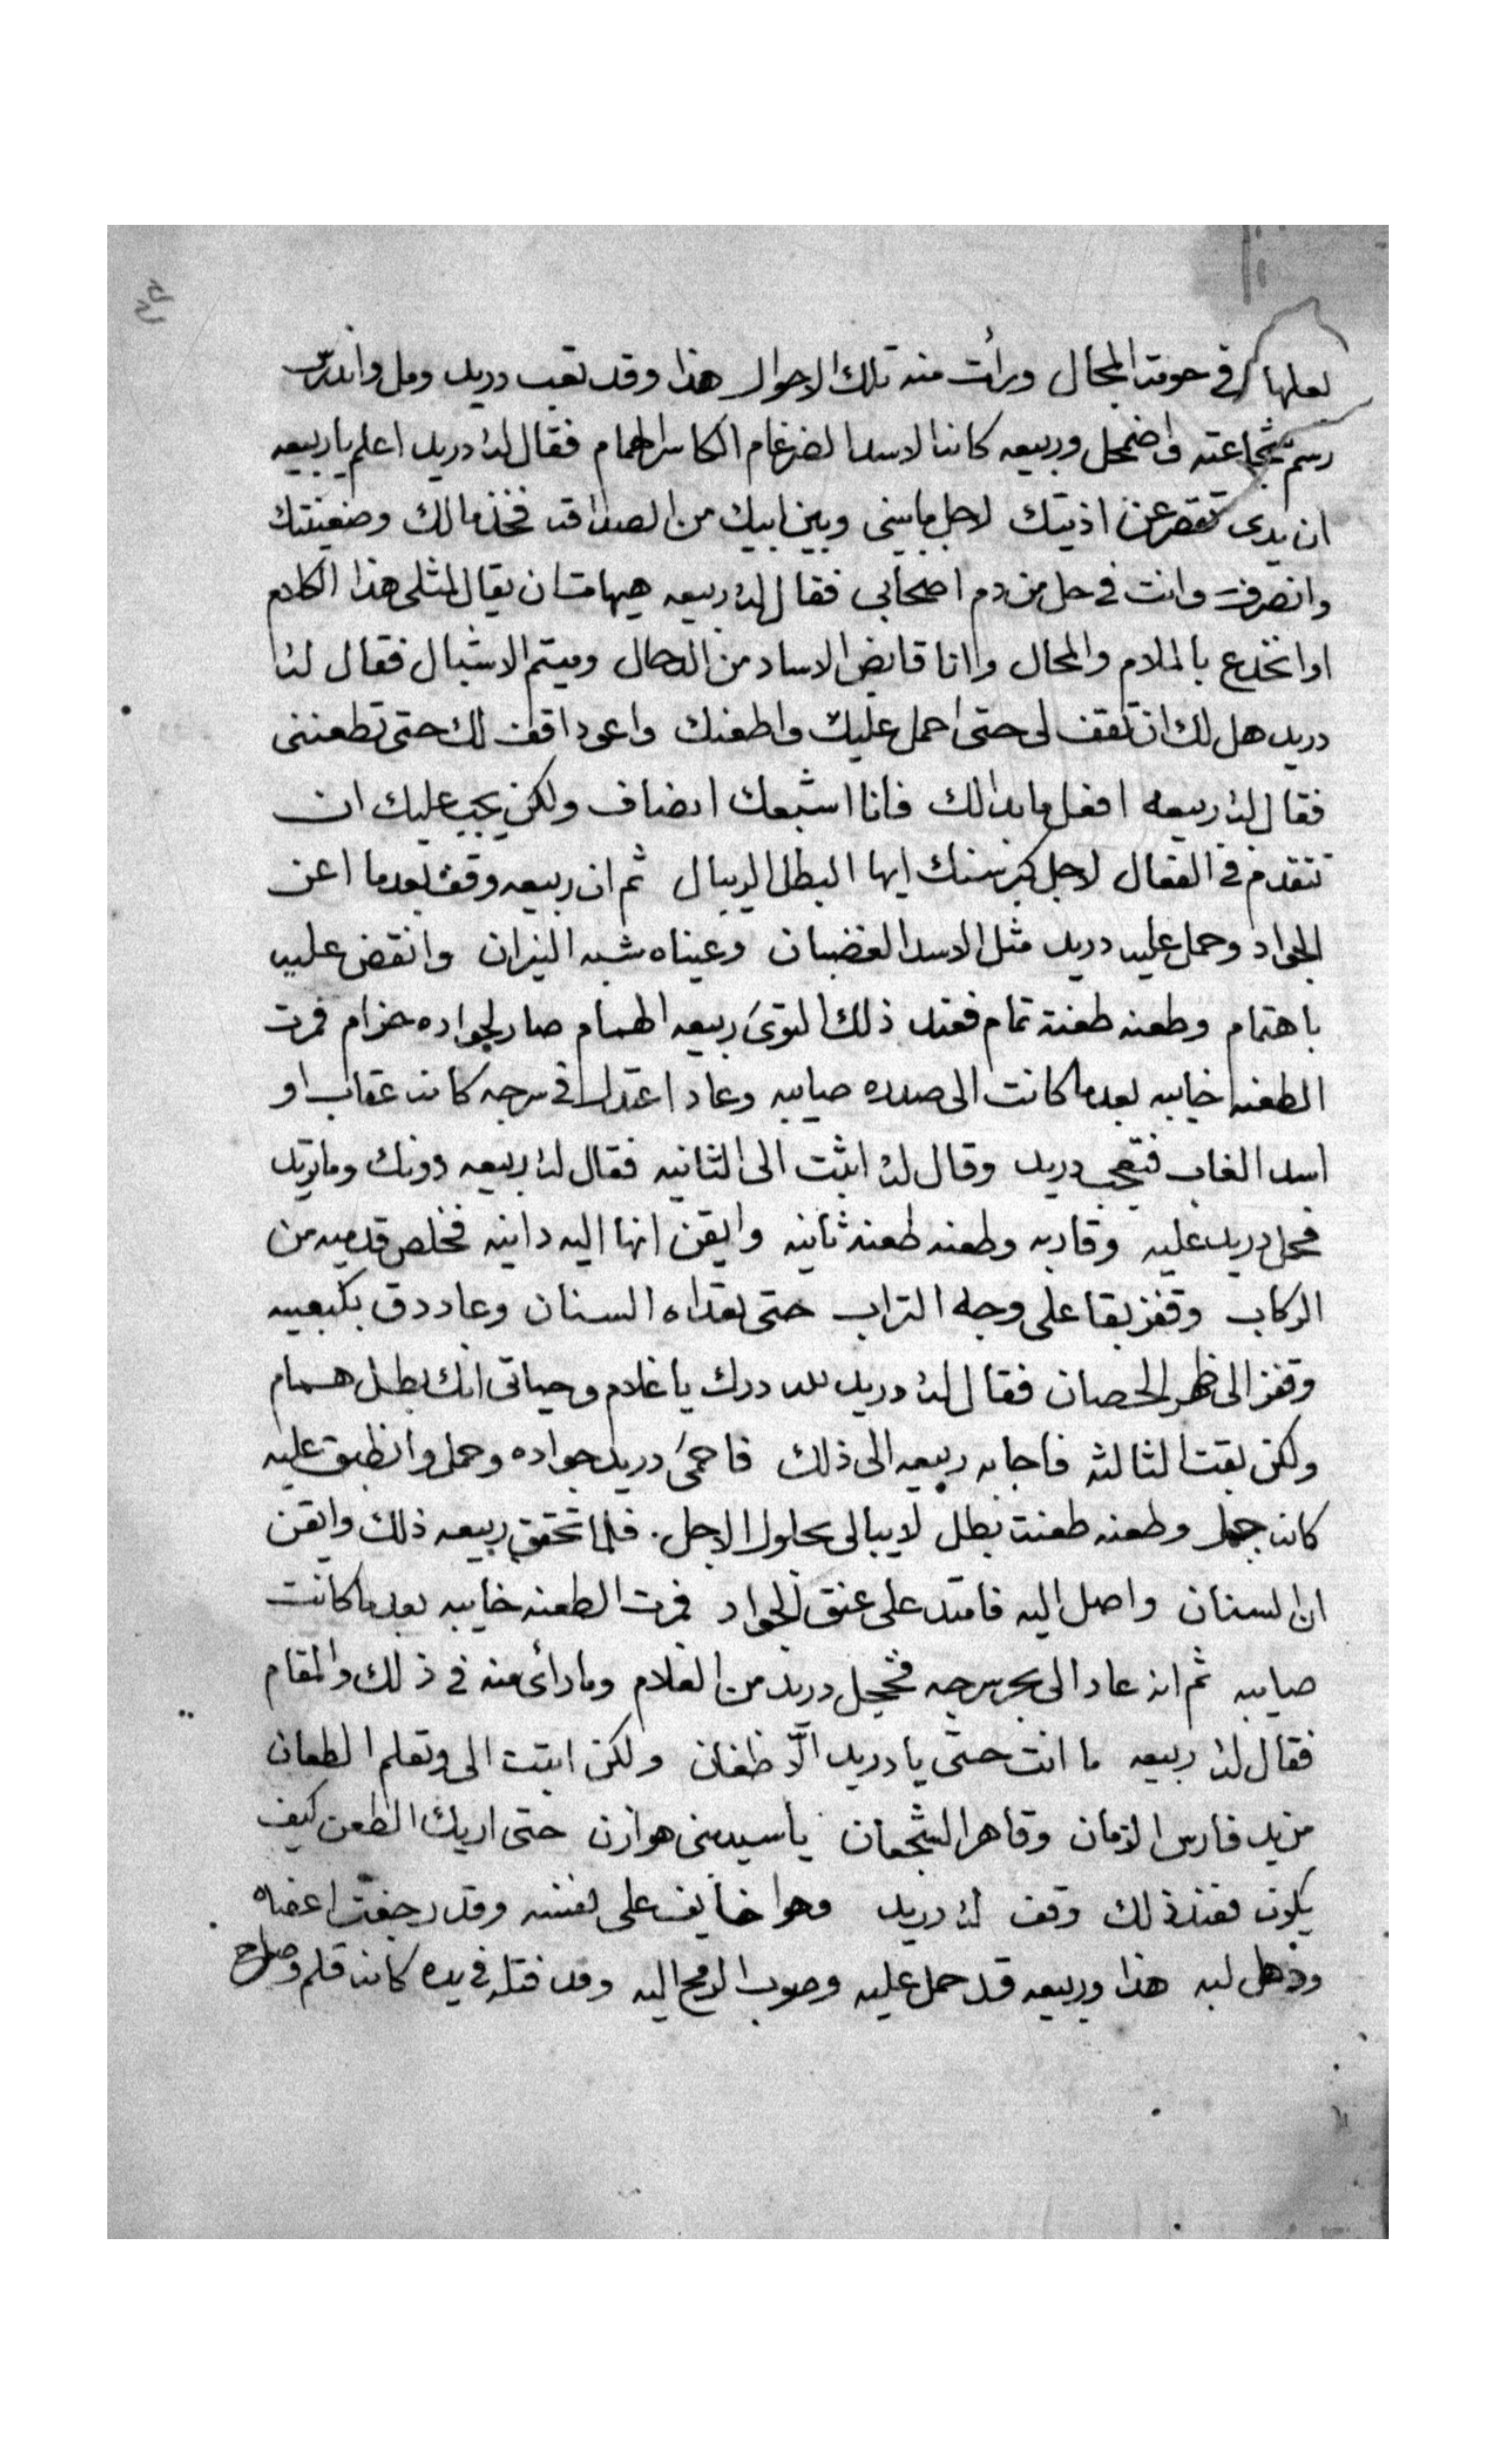 لعلها في حومة المجال ورأت منه تلك الاحوال هذا وقد تعب دريد ومل واندرس
رسم شجاعته واضمحل وربيعه كانه الاسد الضرغام الكاسر الهمام فقال له دريد اعلم يا ربيعه
ان يدى تقصر عن اذيتك لاجل ما بينى وبين ابيك من الصداقه فخذ مالك وضعينتك
وانصرف وانت في حل من دم اصحابي فقال له ربيعه هيهات ان يقال لمثلى هذا الكلام
او انخدع بالملام والمحال وانا قابض الاساد من الدحال وميتم الاشبال فقال له
دريد هل لك ان تقف لى حتى احمل عليك واطعنك واعود اقف لك حتى تطعننى
فقال له ربيعه افعل ما بدالك فانا اشبعك انصاف ولكن يجب عليك ان
تتقدم في الفعال لاجل كبر سنك ايها البطل الريبال ثم ان ربيعه وقف بعدما اعن
الجواد وحمل عليه دريد مثل الاسد الغضبان وعيناه شبه النيران وانقض عليه
باهتمام وطعنه طعنة تمام فعند ذلك التوى ربيعه الهمام صار لجواده حزام فمرت
الطعنه خايبه بعدما كانت الى صدره صايبه وعاد اعتدل في سرجه كانه عقاب او
اسد الغاب فتعجب دريد وقال له اثبت الى الثانيه فقال له ربيعه دونك وما تريد
فحمل دريد عليه وقاربه وطعنه طعنة ثانيه وايقن انها اليه دانيه فخلص قدميه من
الركاب وقفز بقا على وجه التراب حتى تعداه السنان وعاد دق بكعبيه
وقفز الى ظهر الحصان فقال له دريد لله درك يا غلام وحياتى انك بطل همام
ولكن بقت الثالثه فاجابه ربيعه الى ذلك فاحمى دريد جواده وحمل وانطبق عليه
كانه جبل وطعنه طعنت بطل لا يبالى بحلول الاجل. فلما تحقق ربيعه ذلك وايقن
ان السنان واصل اليه فامتد على عنق الجواد فمرت الطعنه خايبه بعدما كانت
صايبه ثم انه عاد الى بحر سرجه فخجل دريد من الغلام وما رأى منه في ذلك المقام
فقال له ربيعه ما انت حتى يا دريد الّا ظغان ولكن اثبت الى وتعلم الطعان
من يد فارس الزمان وقاهر الشجعان يا سيد بنى هوازن حتى اريك الطعن كيف
يكون فعند ذلك وقف له دريد وهوا خايف على نفسه وقد رجفت اعضاه
وذهل لبه هذا وربيعه قد حمل عليه وصوب الرمح اليه وقد فتله في يده كانه قلم وصاح